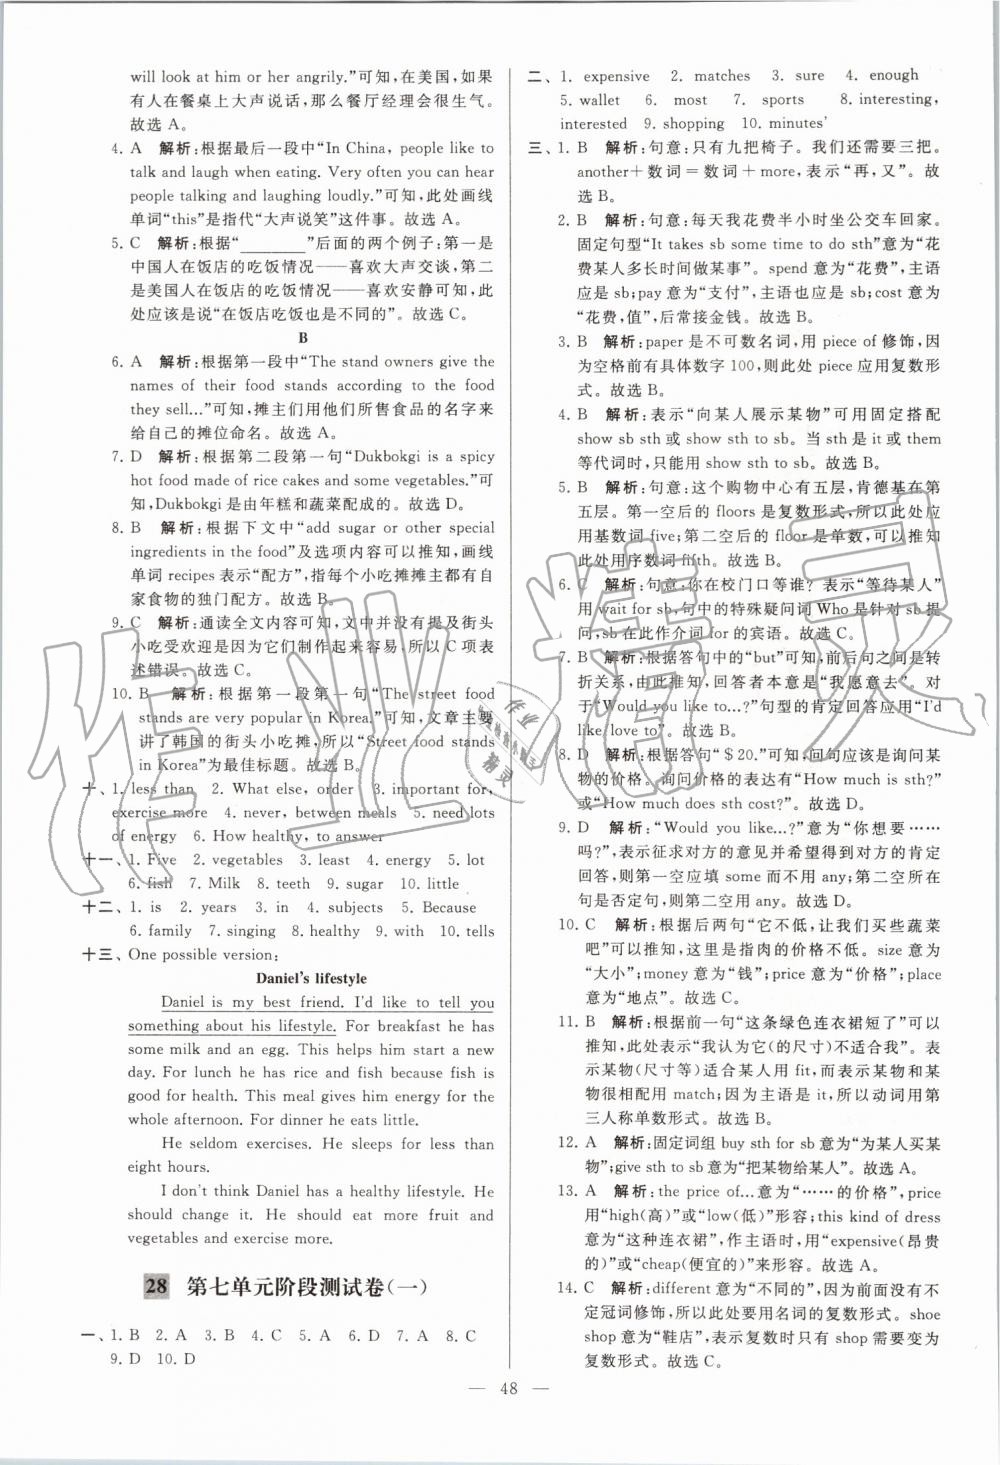 will look at him or her angrily.”可知,在美国,如果
有人在餐桌上大声说话,那么餐厅经理会很生气。
故选 A。
4. A 解析:根据最后一段中“In China, people like to
talk and laugh when eating. Very often you can hear
people talking and laughing loudly.”可知,此处画线
单词“this”是指代“大声说笑”这件事。故选 A。
5. C 解析:根据“________”后面的两个例子:第一是
中国人在饭店的吃饭情况——喜欢大声交谈,第二
是美国人在饭店的吃饭情况——喜欢安静可知,此
处应该是说“在饭店吃饭也是不同的”。故选 C。
B
6. A 解析:根据第一段中“The stand owners give the
names of their food stands according to the food
they sell...”可知,摊主们用他们所售食品的名字来
给自己的摊位命名。故选 A。
7. D 解析:根据第二段第一句“Dukbokgi is a spicy
hot food made of rice cakes and some vegetables.”可
知,Dukbokgi 是由年糕和蔬菜配成的。故选 D。
8. B 解析:根据下文中“add sugar or other special
ingredients in the food”及选项内容可以推知,画线
单词 recipes 表示“配方”,指每个小吃摊摊主都有自
家食物的独门配方。故选 B。
9. C 解析:通读全文内容可知,文中并没有提及街头
小吃受欢迎是因为它们制作起来容易,所以 C 项表
述错误。故选 C。
10. B 解析:根据第一段第一句“The street food
stands are very popular in Korea.”可知,文章主要
讲了韩国的街头小吃摊,所以“Street food stands
in Korea”为最佳标题。故选 B。
十、1. less than 2. What else, order 3. important for,
exercise more 4. never, between meals 5. need lots
of energy 6. How healthy, to answer
十一、1. Five 2. vegetables 3. least 4. energy 5. lot
6. fish 7. Milk 8. teeth 9. sugar 10. little
十二、1. is 2. years 3. in 4. subjects 5. Because
6. family 7. singing 8. healthy 9. with 10. tells
十三、One possible version:
Daniel's lifestyle
Daniel is my best friend. I'd like to tell you
something about his lifestyle. For breakfast he has
some milk and an egg. This helps him start a new
day. For lunch he has rice and fish because fish is
good for health. This meal gives him energy for the
whole afternoon. For dinner he eats little.
He seldom exercises. He sleeps for less than
eight hours.
I don't think Daniel has a healthy lifestyle. He
should change it. He should eat more fruit and
vegetables and exercise more.
28 第七单元阶段测试卷(一)
一、1. B 2. A 3. B 4. C 5. A 6. D 7. A 8. C
9. D 10. D
二、1. expensive 2. matches 3. sure 4. enough
5. wallet 6. most 7. sports 8. interesting,
interested 9. shopping 10. minutes'
三、1. B 解析:句意:只有九把椅子。我们还需要三把。
another+数词=数词+more,表示“再,又”。故
选 B。
2. B 解析:句意:每天我花费半小时坐公交车回家。
固定句型“It takes sb some time to do sth”意为“花
费某人多长时间做某事”。spend 意为“花费”,主语
应是 sb;pay 意为“支付”,主语也应是 sb;cost 意为
“花费,值”,后常接金钱。故选 B。
3. B 解析:paper 是不可数名词,用 piece of 修饰,因
为空格前有具体数字 100,则此处 piece 应用复数形
式。故选 B。
4. B 解析:表示“向某人展示某物”可用固定搭配
show sb sth 或 show sth to sb。当 sth 是 it 或 them
等代词时,只能用 show sth to sb。故选 B。
5. B 解析:句意:这个购物中心有五层,肯德基在第
五层。第一空后的 floors 是复数形式,所以此处应
用基数词 five;第二空后的 floor 是单数,可以推知
此处用序数词 fifth。故选 B。
6. C 解析:句意:你在校门口等谁?表示“等待某人”
用 wait for sb,句中的特殊疑问词 Who 是针对 sb 提
问,sb 在此作介词 for 的宾语。故选 C。
7. B 解析:根据答句中的“but”可知,前后句之间是转
折关系,由此推知,回答者本意是“我愿意去”。对
于“Would you like to...?”句型的肯定回答应用“I'd
like/love to”。故选 B。
8. D 解析:根据答句“＄20.”可知,问句应该是询问某
物的价格。询问价格的表达有“How much is sth?”
或“How much does sth cost?”。故选 D。
9. D 解析:“Would you like...?”意为“你想要……
吗?”,表示征求对方的意见并希望得到对方的肯定
回答,则第一空应填 some 而不用 any;第二空所在
句是否定句,则第二空用 any。故选 D。
10. C 解析:根据后两句“它不低,让我们买些蔬菜
吧”可以推知,这里是指肉的价格不低。size 意为
“大小”;money 意为“钱”;price 意为“价格”;place
意为“地点”。故选 C。
11. B 解析:根据前一句“这条绿色连衣裙短了”可以
推知,此处表示“我认为它(的尺寸)不适合我”。表
示某物(尺寸等)适合某人用 fit,而表示某物和某
物很相配用 match;因为主语是 it,所以动词用第
三人称单数形式。故选 B。
12. A 解析:固定词组 buy sth for sb 意为“为某人买某
物”;give sth to sb 意为“把某物给某人”。故选 A。
13. A 解析:the price of...意为“……的价格”,price
用“high(高)”或“low(低)”形容;this kind of dress
意为“这种连衣裙”,作主语时,用“expensive(昂贵
的)”或“cheap(便宜的)”来形容。故选 A。
14. C 解析:different 意为“不同的”,因为前面没有不
定冠词修饰,所以此处要用名词的复数形式。shoe
shop 意为“鞋店”,表示复数时只有 shop 需要变为
复数形式。故选 C。
— 48 —
作业精灵
作业精灵